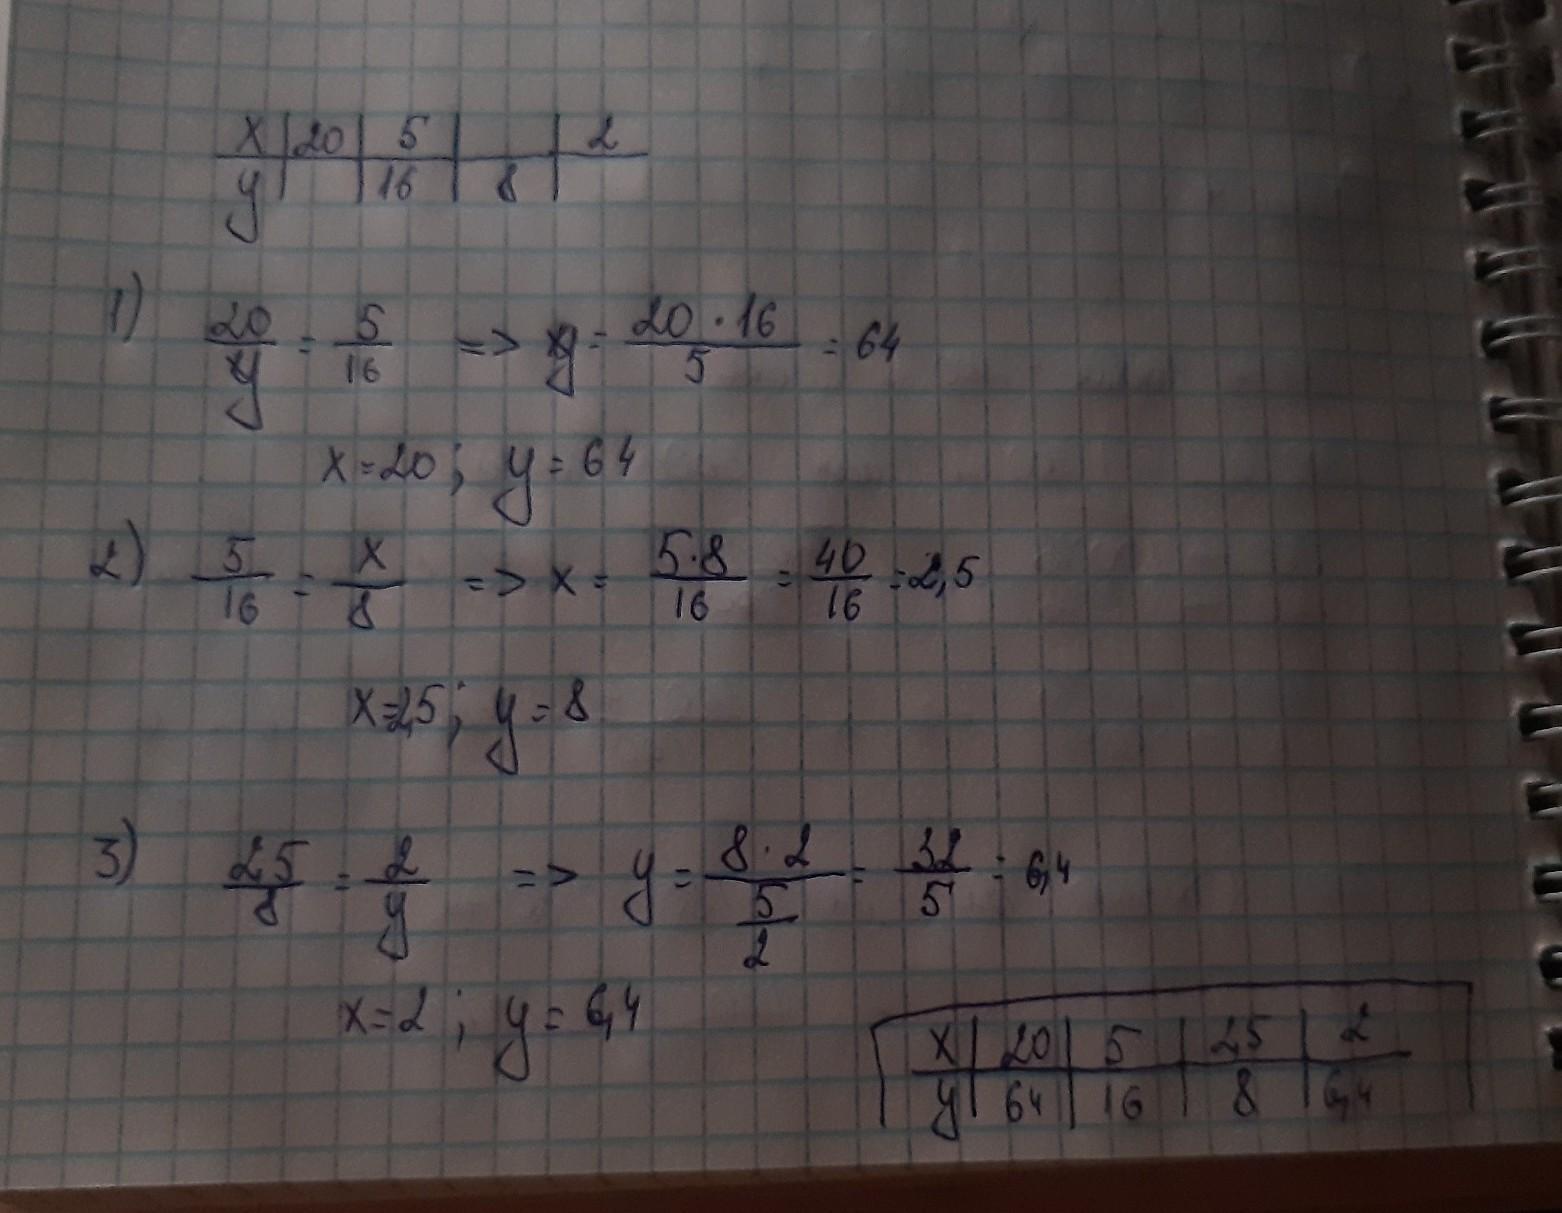 x | 20 | 5 | | 2
y | | 16 | 8 |
1) 20/y = 5/16 => y = 20·16/5 = 64
x=20; y=64
2) 5/16 = x/8 => x = 5·8/16 = 40/16 = 2,5
x=2,5; y=8
3) 2,5/8 = 2/y => y = 8·2/(5/2) = 32/5 = 6,4
x=2; y=6,4
x | 20 | 5 | 2,5 | 2
y | 64 | 16 | 8 | 6,4